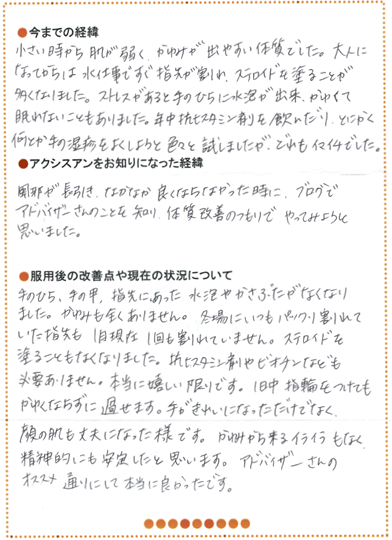 ●今までの経緯
小さい時から肌が弱く、かゆみが出やすい体質でした。大人に
なってからは水仕事ですぐ指先が割れ、ステロイドを塗ることが
多くなりました。ストレスがあると手のひらに水泡が出来、かゆくて
眠れないこともありました。年中抗ヒスタミン剤を飲んだり、とにかく
何とか手の湿疹をよくしようと色々と試しましたが、どれもイマイチでした。
●アクシスアンをお知りになった経緯
風邪が長引き、なかなか良くならなかった時に、ブログで
アドバイザーさんのことを知り、体質改善のつもりでやってみようと
思いました。
●服用後の改善点や現在の状況について
手のひら、手の甲、指先にあった水泡やかさぶたがなくなり
ました。かゆみも全くありません。冬場にいつもパックリ割れて
いた指先も1月現在1回も割れていません。ステロイドを
塗ることもなくなりました。抗ヒスタミン剤やビオチンなども
必要ありません。本当に嬉しい限りです。1日中指輪をつけても
かゆくならずに過せます。手がきれいになっただけでなく、
顔の肌も丈夫になった様です。かゆみから来るイライラもなく、
精神的にも安定したと思います。アドバイザーさんの
オススメ通りにして本当に良かったです。